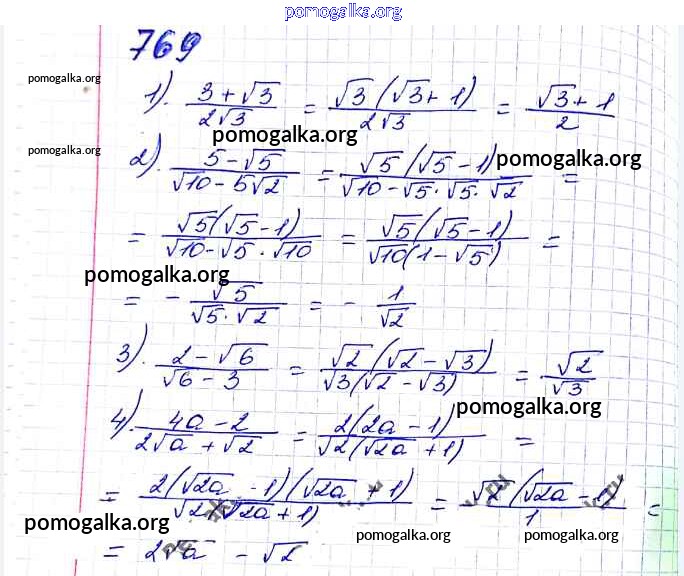 pomogalka.org
769
pomogalka.org
1). (3 + √3)/(2√3) = (√3(√3 + 1))/(2√3) = (√3 + 1)/2
pomogalka.org
pomogalka.org
2). (5 - √5)/(√10 - 5√2) = (√5(√5 - 1))/(√10 - √5 · √5 · √2) =
pomogalka.org
= (√5(√5 - 1))/(√10 - √5 · √10) = (√5(√5 - 1))/(√10(1 - √5)) =
pomogalka.org
= - √5/(√5 · √2) = - 1/√2
3). (2 - √6)/(√6 - 3) = (√2(√2 - √3))/(√3(√2 - √3)) = √2/√3
pomogalka.org
4). (4a - 2)/(2√a + √2) = (2(2a - 1))/(√2(√2a + 1)) =
= (2(√2a - 1)(√2a + 1))/(√2(√2a + 1)) = (√2(√2a - 1))/1 =
pomogalka.org
pomogalka.org
pomogalka.org
= 2√a - √2